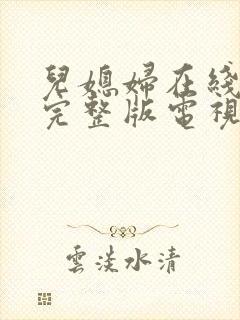 兒媳婦在綫
完整版電視
雲淡水清